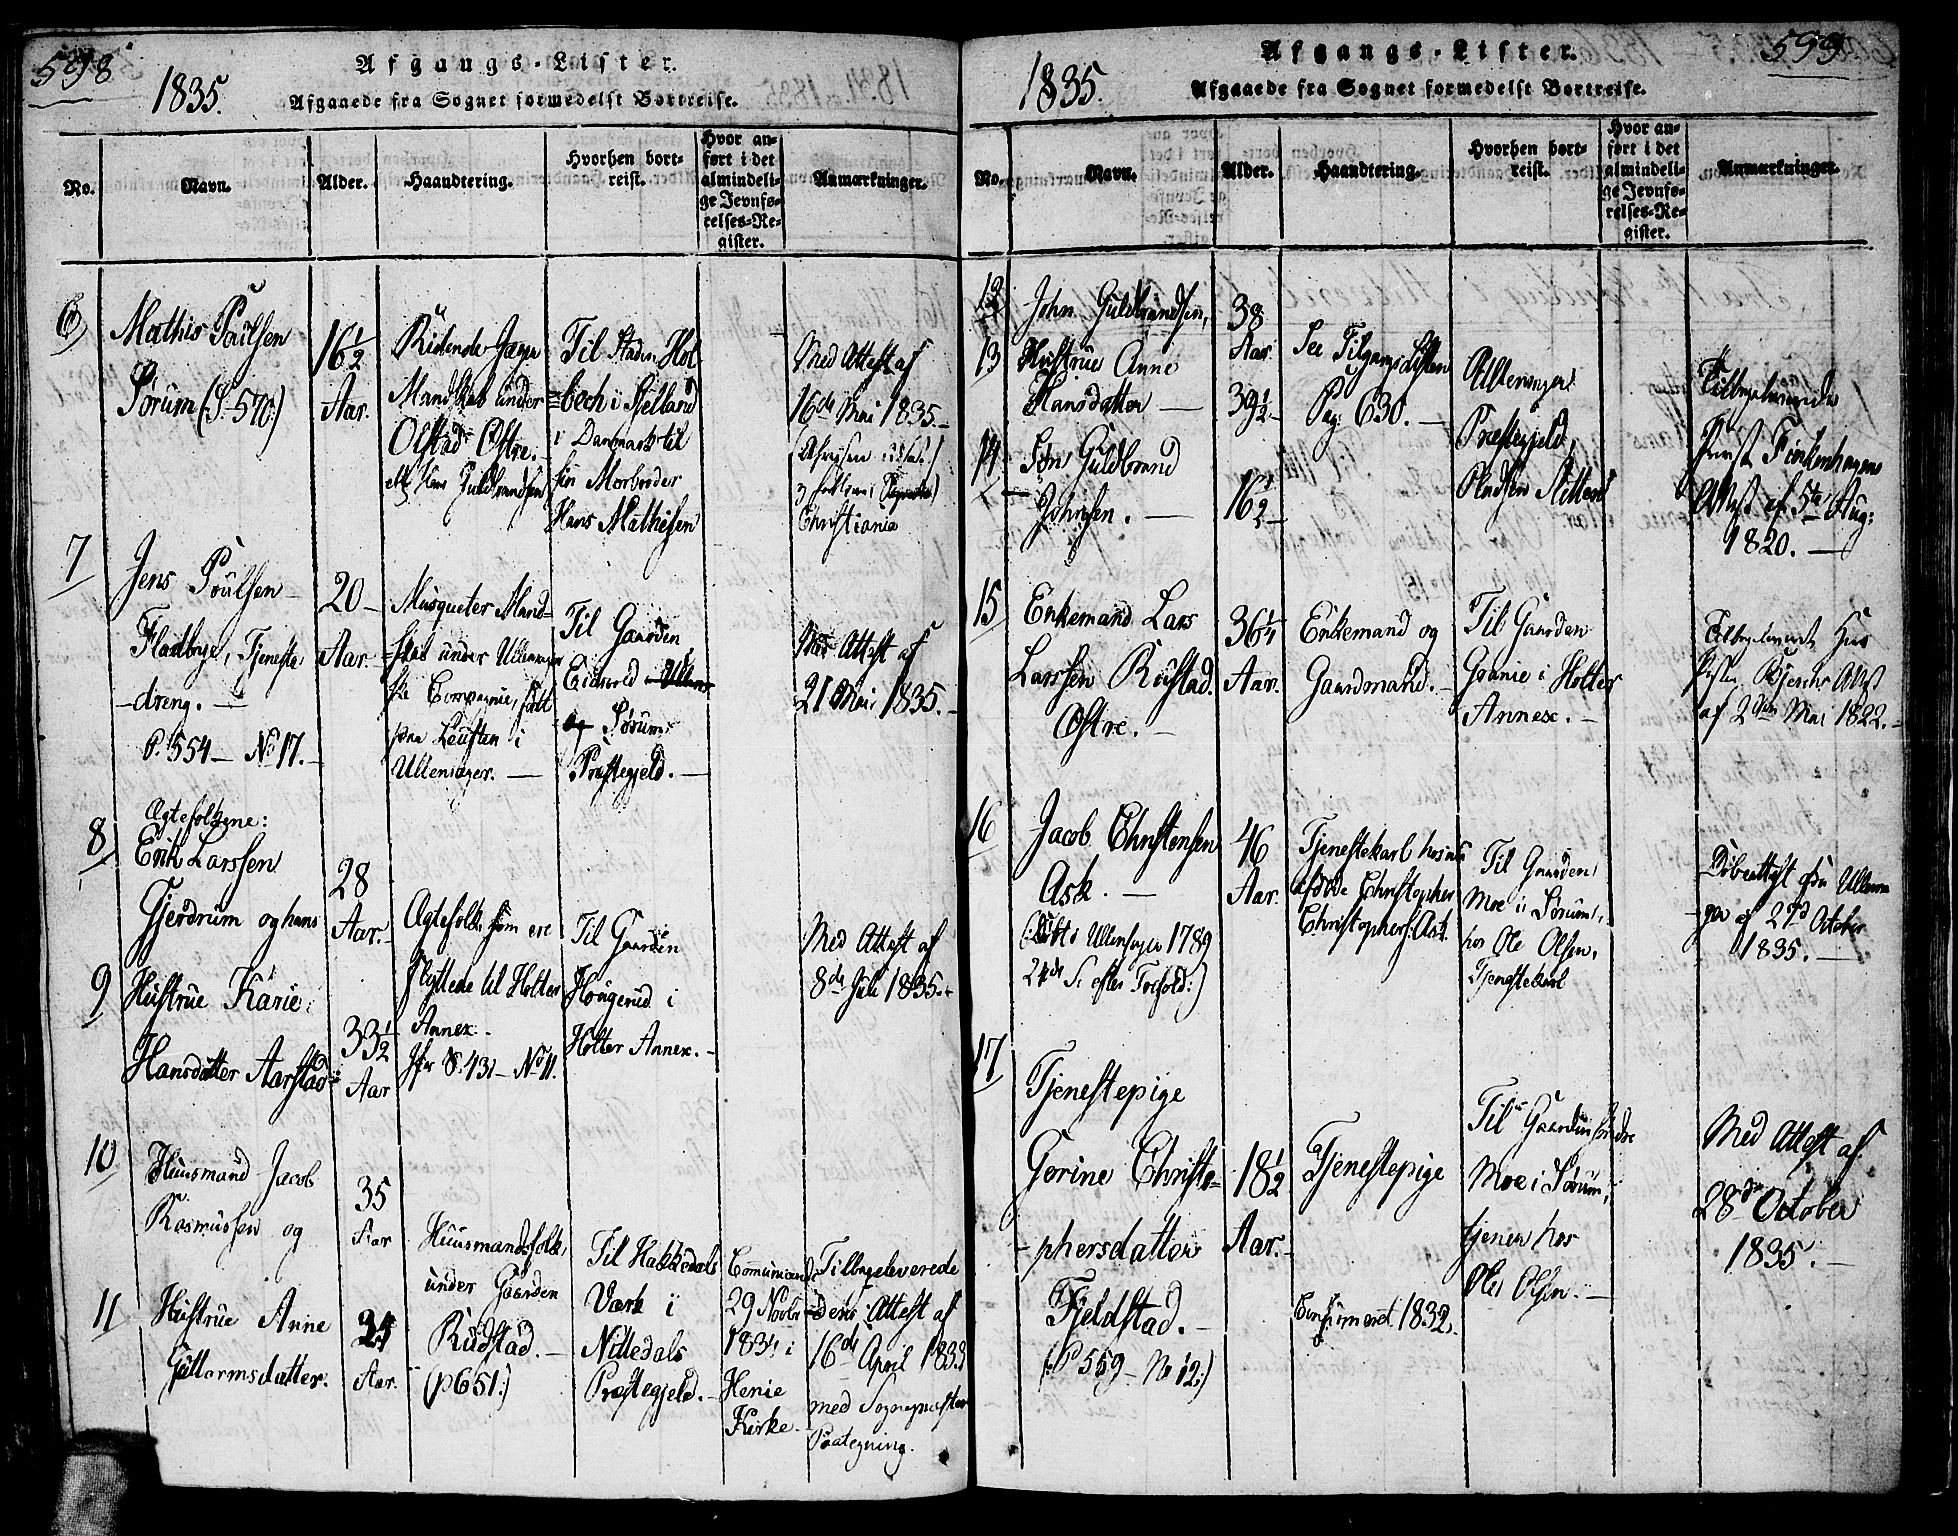 598
1835.
Afgangs-Lister.
Afgaaede fra Sognet formedelst Bortreise.
No.
Navn.
Alder.
Haandtering.
Hvorhen bort-
reist.
Hvor an-
ført i det
almindeli-
ge Jevnfø-
relses-Re-
gister.
Anmærkninger.
6
Mathis Poulsen
Sørum (S. 570.)
16½
Aar.
Ridende Jæger
Mandskab under
Olstad Østre.
Hans Guldbrandsen
Til Staden Hol
bech i Sjelland
i Danmark til
sin Morbroder
Hans Mathisen
Med Attest af
16de Mai 1835.
Christiania
7
Jens Poulsen
Fladbye, Tjeneste
dreng.
P. 554 – No 17.
20
Aar.
Musqueter Mand-
skab under Ullensager
ske Compagnie, født
paa i
Ullensager.
Til Gaarden
Eidsvold
og Sørum
Præstegjeld.
Med Attest af
21 Mai 1835.
8
Ægtefolkene:
Erik Larssen
Gjerdrum og hans
28
Aar.
Ægtefolk, som ere
flyttede til Holter
Annex.
S. 431 – No 11.
Til Gaarden
Hougerud i
Holter Annex.
Med Attest af
8de Juli 1835.
9
Hustrue Karie
Hansdatter Aarstad
33½
Aar
10
Huusmand Jacob
Rasmussen og
35
Aar
Huusmandsfolk
under Gaarden
Rudstad.
(p 651.)
Til Hakkedals
Værk i
Nittedals
Præstegjeld.
29 Novbr
1834 i
Henie
Kirke.
Tilbageleverede
dens Attest af
16de April 1833
med Sognepræstens
Paategning.
11
Hustrue Anne
Guttormsdatter.
34
Aar.
599
1835.
Afgangs-Lister.
Afgaaede fra Sognet formedelst Bortreise.
No.
Navn.
Alder.
Haandtering.
Hvorhen bort-
reist.
Hvor an-
ført i det
almindeli-
ge Jevnfø-
relses-Re-
gister.
Anmærkninger.
12
John Guldbrandsen,
38
Aar.
See Tilgangs Listen
Pag. 630.
Ullensager
Præstegjeld,
Pladsen
Tilbageleverede
Præst Finkenhagens
Attest af 5te Aug:
1820.
13
Hustrue Anne
Hansdatter
39½
14
Søn Guldbrand
Johnsen.
16½
15
Enkemand Lars
Larssen Rustad
Østre.
36¼
Aar.
Enkemand og
Gaardmand.
Til Gaarden
Granie i Holter
Annex.
Tilbageleverede Hus
Attest
af 2den Mai 1822.
16
Jacob Christensen
Ask.
Ullensager 1789
46
Aar.
Tjenestekarl hos
afdøde Christopher
Christophers: Ask.
Til Gaarden
Moe i Sørum,
hos Ole Olsen,
Tjenestekarl
Døbeattest fra Ullensa
ger af 27d October
1835.
17
Tjenestepige
Gorine Christo-
phersdatter
Fjeldstad.
(: P 559 – No 12:)
18½
Aar.
Tjenestepige
Confirmeret 1832.
Til Gaarden søndre
Moe i Sørum,
tjener hos
Ole Olsen.
Med Attest af
28de October
1835.